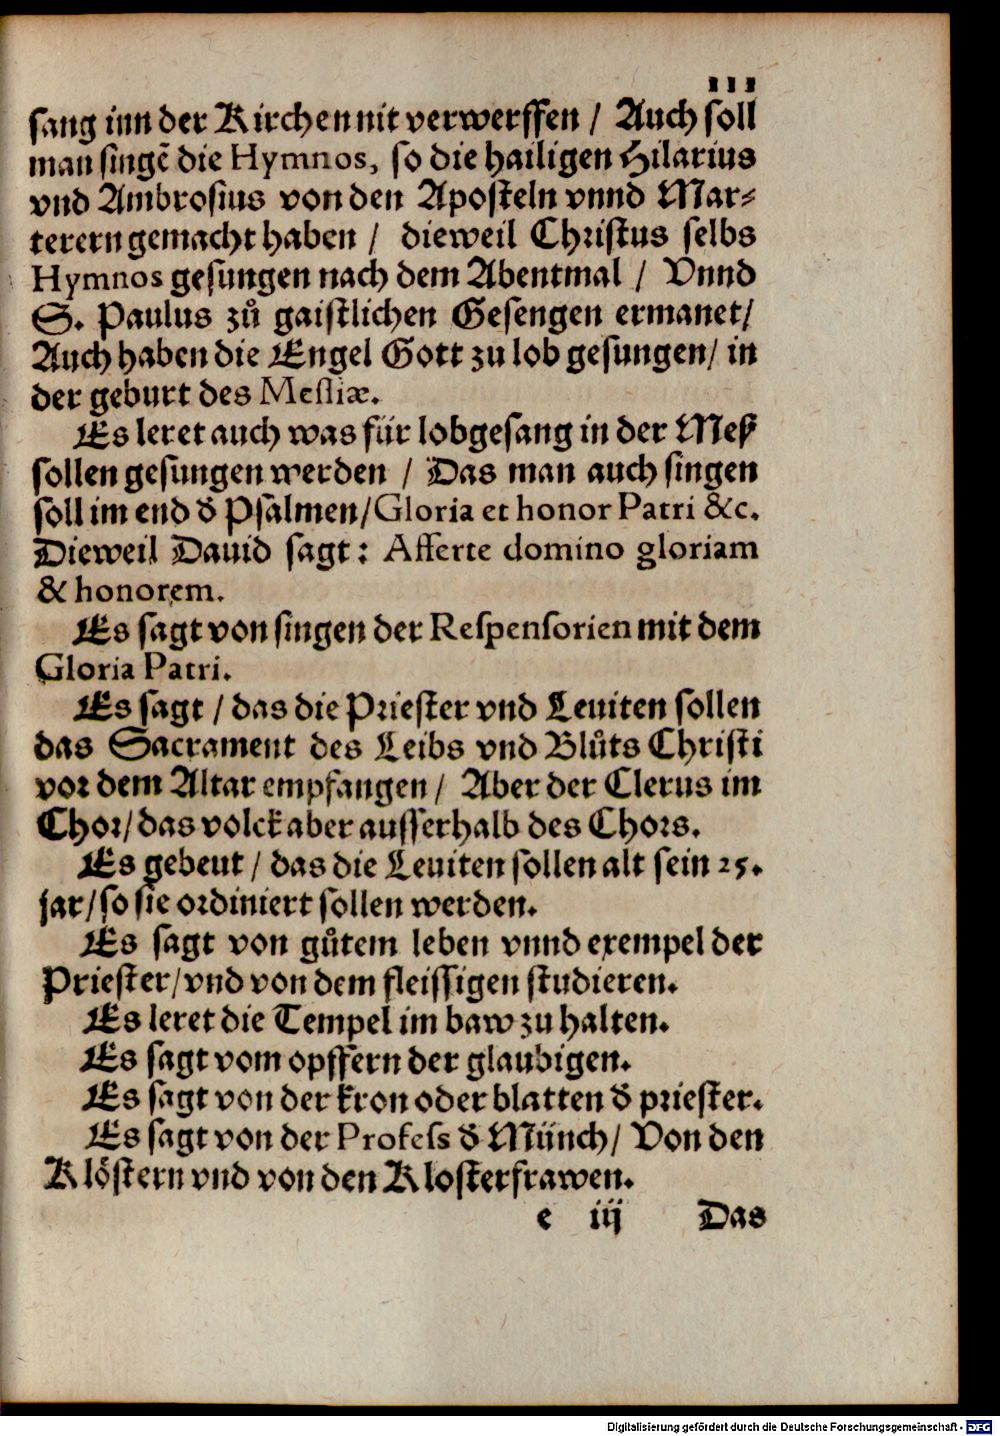 111
sang inn der Kirchen nit verwerffen / Auch soll
man singē die Hymnos, so die hailigen Hilarius
vnd Ambrosius von den Aposteln vnnd Mar⸗
terern gemacht haben / dieweil Christus selbs
Hymnos gesungen nach dem Abentmal / Vnnd
S. Paulus zů gaistlichen Gesengen ermanet/
Auch haben die Engel Gott zu lob gesungen/ in
der geburt des Messiæ.
Es leret auch was für lobgesang in der Meß
sollen gesungen werden / Das man auch singen
soll im end d̕ Psalmen/Gloria et honor Patri &c.
Dieweil Dauid sagt: Afferte domino gloriam
& honorem.
Es sagt von singen der Respensorien mit dem
Gloria Patri.
Es sagt / das die Priester vnd Leuiten sollen
das Sacrament des Leibs vnd Blůts Christi
vor dem Altar empfangen / Aber der Clerus im
Chor/das volck aber ausserhalb des Chors.
Es gebeut / das die Leuiten sollen alt sein 25.
jar/so sie ordiniert sollen werden.
Es sagt von gůtem leben vnnd exempel der
Priester/vnd von dem fleissigen studieren.
Es leret die Tempel im baw zu halten.
Es sagt vom opffern der glaubigen.
Es sagt von der kron oder blatten d̕ priester.
Es sagt von der Profess d̕ Münch/ Von den
Klöstern vnd von den Klosterfrawen.
e iij Das
Digitalisierung gefördert durch die Deutsche Forschungsgemeinschaft - DFG